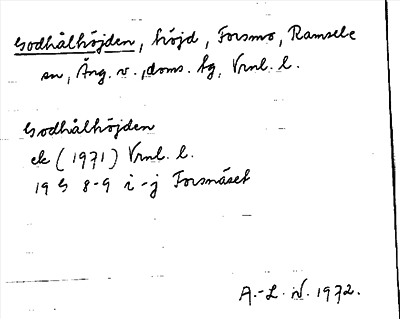 Godhålhöjden, höjd, Forsmo, Ramsele
sn, Ång. v., doms. tg, Vrnl. l.
Godhålhöjden
ek (1971) Vrnl. l.
19 G 8-9 i-j Forsnäset
A.-L. N. 1972.